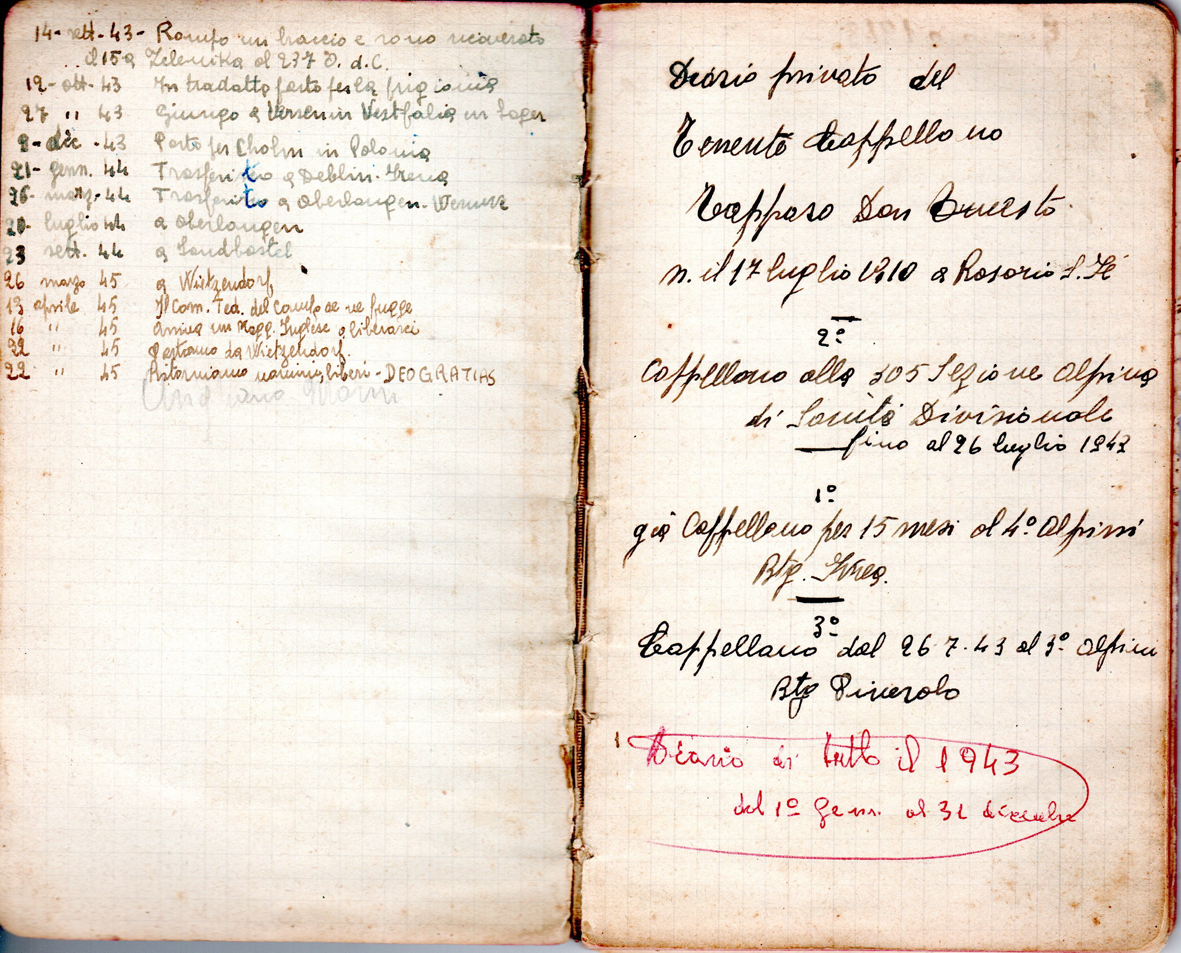 14- sett. 43- Rompo un braccio e sono ricoverato
il 15 a Zelenika al 237 O. d. C.
12- ott- 43 In tradotta parto per la prigionia
27 " 43 Giungo a Versen in Vestfalia in Lager
9- dic - 43 Parto per Cholm in Polonia
21- genn. 44 Trasferito a Deblin-Irena
26- marz- 44 Trasferito a Oberlangen-
20- luglio 44 a Oberlangen
23 sett. 44 a Sandbostel
26 marzo 45 a Wietzendorf
13 aprile 45 Il Com. Ted. del campo se ne fugge
16 " 45 Arriva un Magg. Inglese a liberarci
22 " 45 Partiamo da Wietzendorf.
22 " 45 Ritorniamo uomini liberi - DEO GRATIAS
Diario privato del
Tenente Cappellano
Tapparo Don Ernesto
n. il 17 luglio 1910 a Rosario S. Fé
2º
Cappellano alla 305 Sezione Alpina
di Sanità Divisionale
fino al 26 luglio 1943
1º
già Cappellano per 15 mesi al 4º Alpini
Btg. Ivrea.
3º
Cappellano dal 26.7.43 al 3º Alpini
Btg Pinerolo
Diario di tutto il 1943
dal 1º Genn. al 31 dicembre